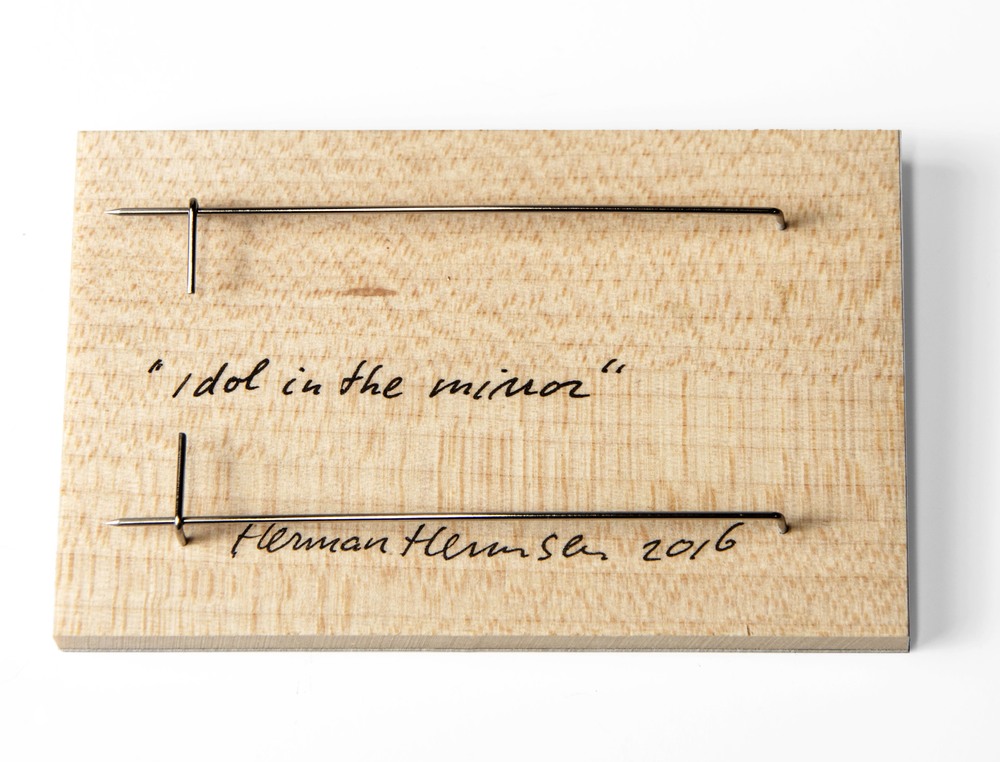 "Idol in the mirror"
Herman Hermsen 2016